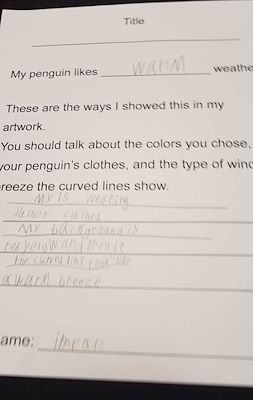 Title
My penguin likes warm weathe
These are the ways I showed this in my
artwork.
You should talk about the colors you chose,
your penguin's clothes, and the type of wind
reeze the curved lines show.
My is wearing
clothes
My background is
red yelow and
the curved lins look like
a warm breeze
ame: imran